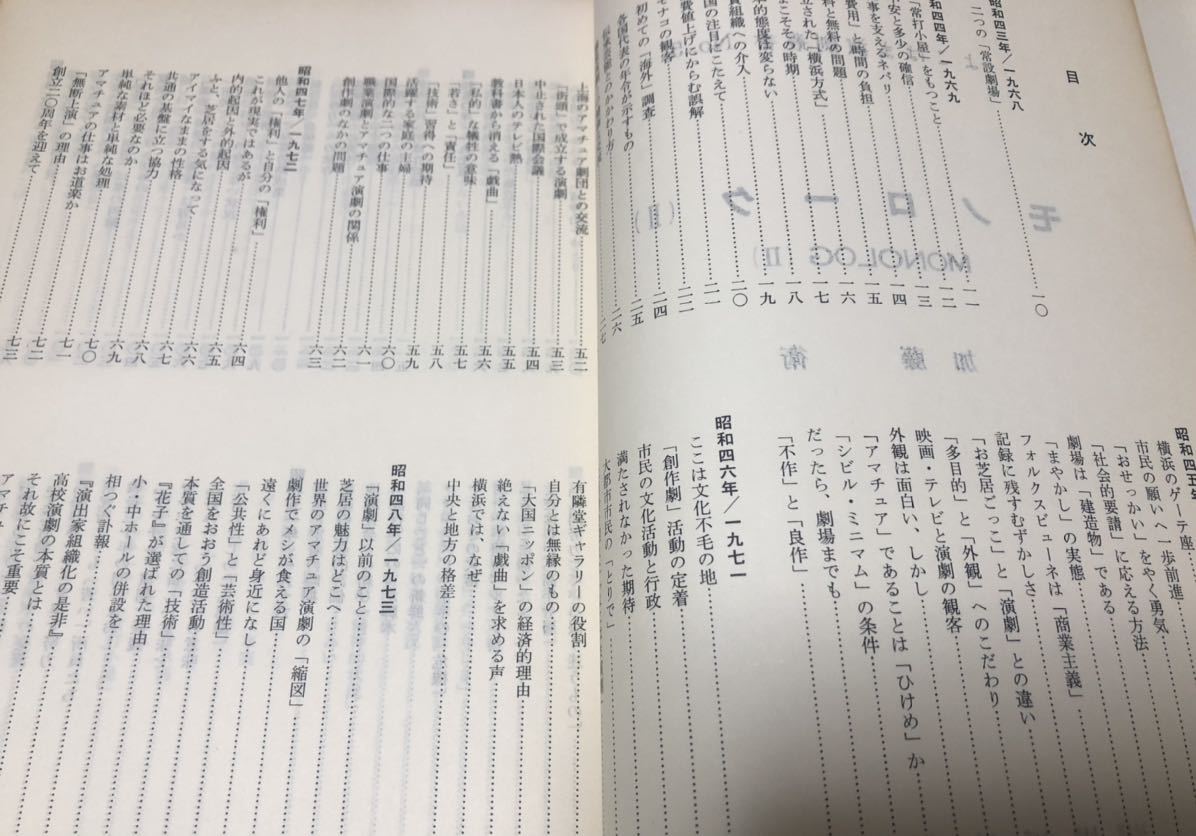 目次
昭和四三年／一九六八
二つの「常設劇場」……一〇
昭和四四年／一九六九
「常打小屋」をもつこと……一一
安と多少の確信……一二
事を支えるネバリ……一三
費用」と時間の負担……一四
料と無料の問題……一五
立された「横浜方式」……一六
こそその時期……一七
本的態度は変らない……一八
組織への介入……一九
国の注目にこたえて……二〇
費値上げにからむ誤解……二一
モナコの観客……二二
初めての「海外」調査……二四
各国代表の年令が示すもの……二五
とのかかわり方……二六
昭和四五年
横浜のゲーテ座……
市民の願いへ一歩前進……
「おせっかい」をやく勇気……
「社会的要請」に応える方法……
劇場は「建造物」である……
「まやかし」の実態……
フォルクスビューネは「商業主義」
記録に残すむずかしさ……
「お芝居ごっこ」と「演劇」との違い
「多目的」と「外観」へのこだわり……
映画・テレビと演劇の観客……
外観は面白い、しかし……
「アマチュア」であることは「ひけめ」か
「シビル・ミニマム」の条件……
だったら、劇場までも……
「不作」と「良作」……
昭和四六年／一九七一
ここは文化不毛の地……
「創作劇」活動の定着……
市民の文化活動と行政……
満たされなかった期待……
大都市市民の「とりで」……
上海のアマチュア劇団との交流……五二
「街頭」で成立する演劇……五三
中止された国際会議……五四
日本人のテレビ熱……五五
教科書から消える「戯曲」……五六
「私的」な犠牲の意味……五七
「若さ」と「責任」……五七
「技術」習得への期待……五八
活躍する家庭の主婦……五九
国際的な二つの仕事……六〇
職業演劇とアマチュア演劇の関係……六一
創作劇のなかの問題……六二
昭和四七年／一九七二
他人の「権利」と自分の「権利」……六三
これが現実ではあるが……
内的起因と外的起因……六四
ふと、芝居をする気になって……六五
アイマイなままの性格……六六
共通の基盤に立つ協力……六七
それほど必要なのか……六八
単純な素材と単純な処理……六九
アマチュアの仕事はお道楽か……七〇
「無断上演」の理由……七一
創立二〇周年を迎えて……七二
七三
有隣堂ギャラリーの役割……
自分とは無縁のもの……
「大国ニッポン」の経済的理由……
絶えない「戯曲」を求める声……
横浜では、なぜ……
中央と地方の格差……
昭和四八年／一九七三
「演劇」以前のこと……
芝居の魅力はどこへ……
世界のアマチュア演劇の「縮図」……
劇作でメシが食える国……
遠くにあれど身近になし……
「公共性」と「芸術性」……
全国をおおう創造活動……
本質を通しての「技術」……
『花子』が選ばれた理由……
小・中ホールの併設を……
相つぐ訃報……
『演出家組織化の是非』……
高校演劇の本質とは……
それ故にこそ重要……
アマチュ